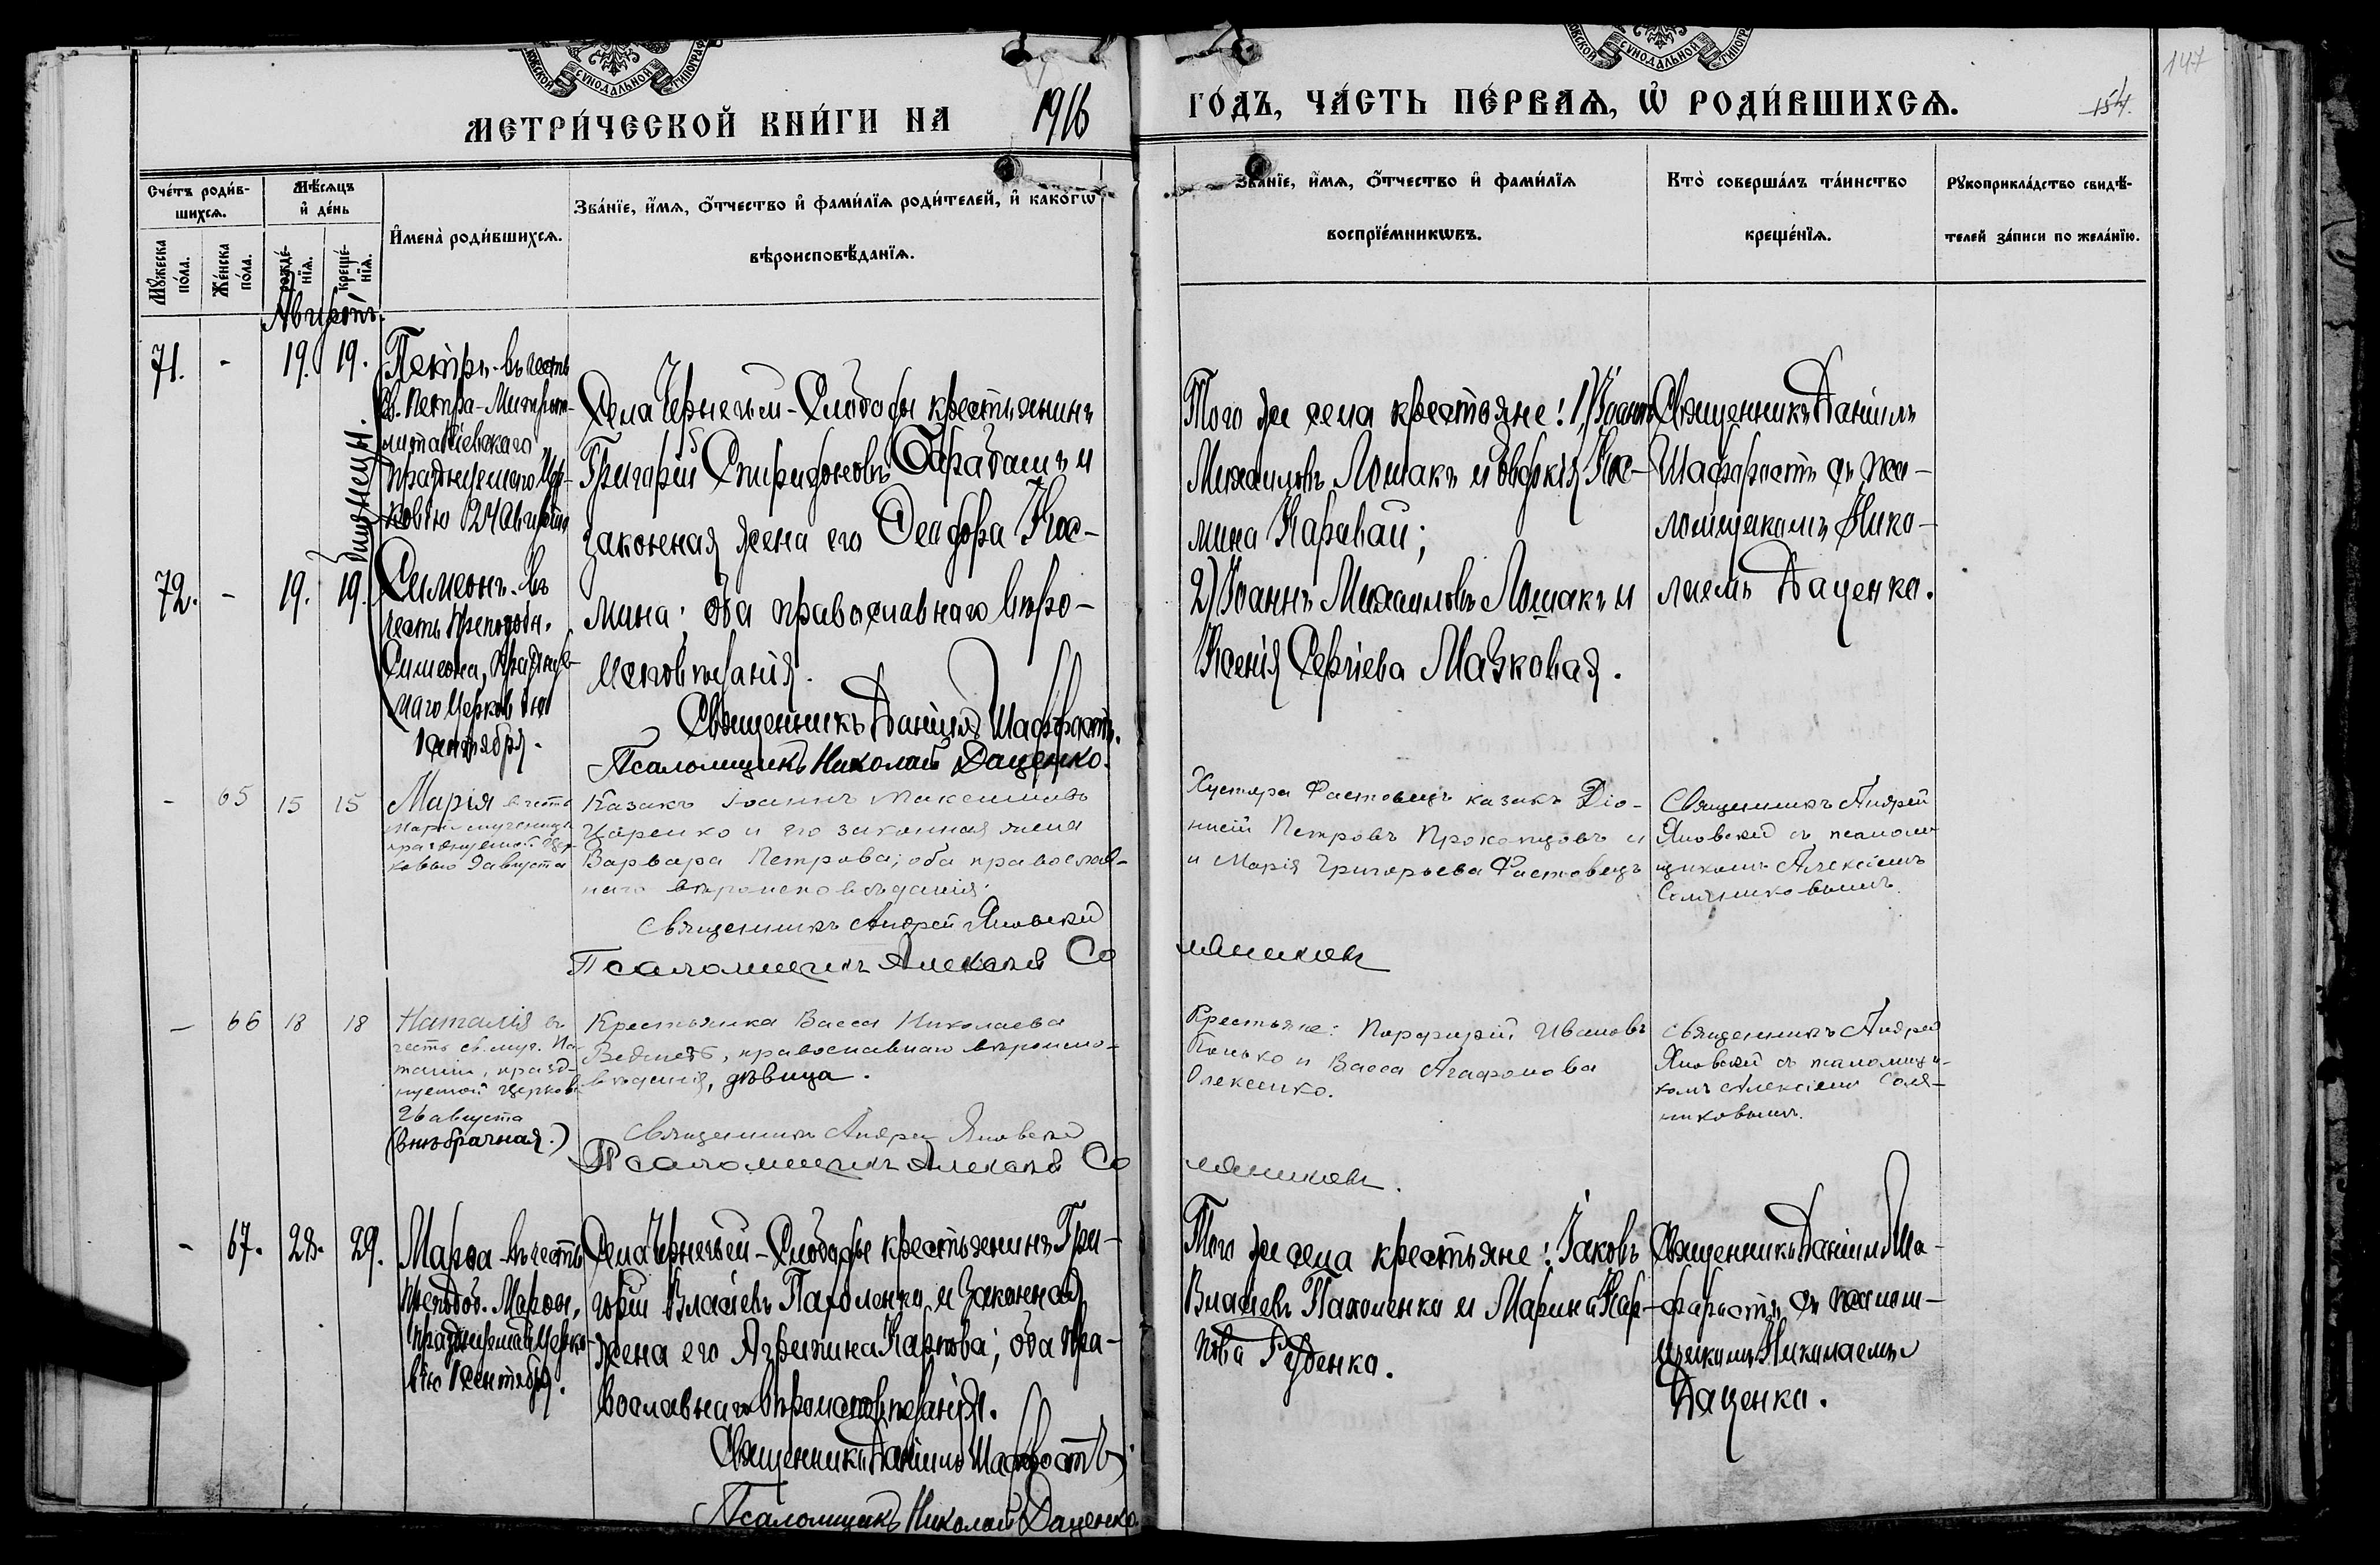 МОСКОВСКОЙ СѴНОДАЛЬНОЙ ТИПОГРАФ
СѴНОДАЛЬНОЙ ТИПОГРАФ
МЕТРИ́ЧЕСКОЙ КНИ́ГИ НА 1916 ГО́ДЪ, ЧА́СТЬ ПЕ́РВАЯ, Ѡ҆ РОДИ́ВШИХСЯ.
147
154.
Сче́тъ роди́в-
шихся.
Мꙋ́жеска
по́ла.
Же́нска
по́ла.
Мѣ́сяцъ
и҆ де́нь
рожде́-
нїя.
креще́-
нїя.
И҆мена̀ роди́вшихся.
Зва́нїе, и҆́мя, ѻ҆́тчество и҆ фами́лїя роди́телей, и҆ како́гѡ
вѣроисповѣ́данїя.
Зва́нїе, и҆́мя, ѻ҆́тчество и҆ фами́лїя
воспрїе́мникѡвъ.
Кто̀ соверша́лъ та́инство
креще́нїя.
Рꙋкоприкла́дство свидѣ́-
телей за́писи по жела́нїю.
Августъ.
71. - 19. 19.
Петръ - въ честь
Св. Петра - Митропо-
лита Кіевскаго,
празднуемаго Цер-
ковію 24 Августа
близнецы.
72. - 19. 19.
Симеонъ - въ
честь Преподобн.
Симеона, празднуе-
маго Церковію
1 Сентября.
Села Чернечьей-Слободы крестьянинъ
Григорій Спиридоновъ Барабашъ и
законная жена его Феодора Кос-
мина; оба православнаго вѣро-
исповѣданія.
Священникъ Даніилъ Шафрастъ.
Псаломщикъ Николай Даценко.
Того же села крестьяне: 1) Іоаннъ
Михаиловъ Лошакъ и Евфкія Кос-
мина Каравай;
2) Іоаннъ Михаиловъ Лошакъ и
Ксенія Сергіева Мазковая.
Священникъ Даніилъ
Шафрастъ съ пса-
ломщикомъ Нико-
лаемъ Даценко.
- 65 15 15
Марія въ честь
Маріи мученицы
празднуемой Цер-
ковью 9 августа
Казакъ Іоаннъ Максимовъ
Царенко и его законная жена
Варвара Петрова; оба православ-
наго вѣроисповѣданія.
Священникъ Андрей Яновскій
Псаломщикъ Алексѣй Со
ляниковъ
Хутора Фастовецъ казакъ Діо-
нисій Петровъ Прокопцовъ и
и Марія Григорьева Фастовецъ
Священникъ Андрей
Яновскій съ псалом
щикомъ Алексіемъ
Соляниковымъ.
- 66 18 18
Наталія въ
честь св. муч. На-
таліи, празд-
нуемой Церков.
26 августа
(внѣбрачная.)
Крестьянка Васса Николаева
православнаго вѣроиспо-
вѣданія, дѣвица.
Священникъ Андрей Яновскій
Псаломщикъ Алексѣй Со
ляниковъ.
Крестьяне: Порфирій Ивановъ
Понько и Васса Агафонова
Олексенко.
Священникъ Андрей
Яновскій съ псаломщи-
комъ Алексіемъ Соля-
никовымъ.
- 67. 28. 29.
Марѳа - въ честь
преподоб. Марѳы,
празднуемой Церко-
вію 1 Сентября.
Села Чернечьей-Слободы крестьянинъ Гри-
горій Власіевъ Пахоленко и законная
жена его Агрипина Карпова; оба пра-
вославнаго вѣроисповѣданія.
Священникъ Даніилъ Шафрастъ.
Псаломщикъ Николай Даценко.
Того же села крестьяне: Іаковъ
Власіевъ Пахоленко и Марина Кар-
пова Руденко.
Священникъ Даніилъ Ша-
фрастъ съ псалом-
щикомъ Николаемъ
Даценко.